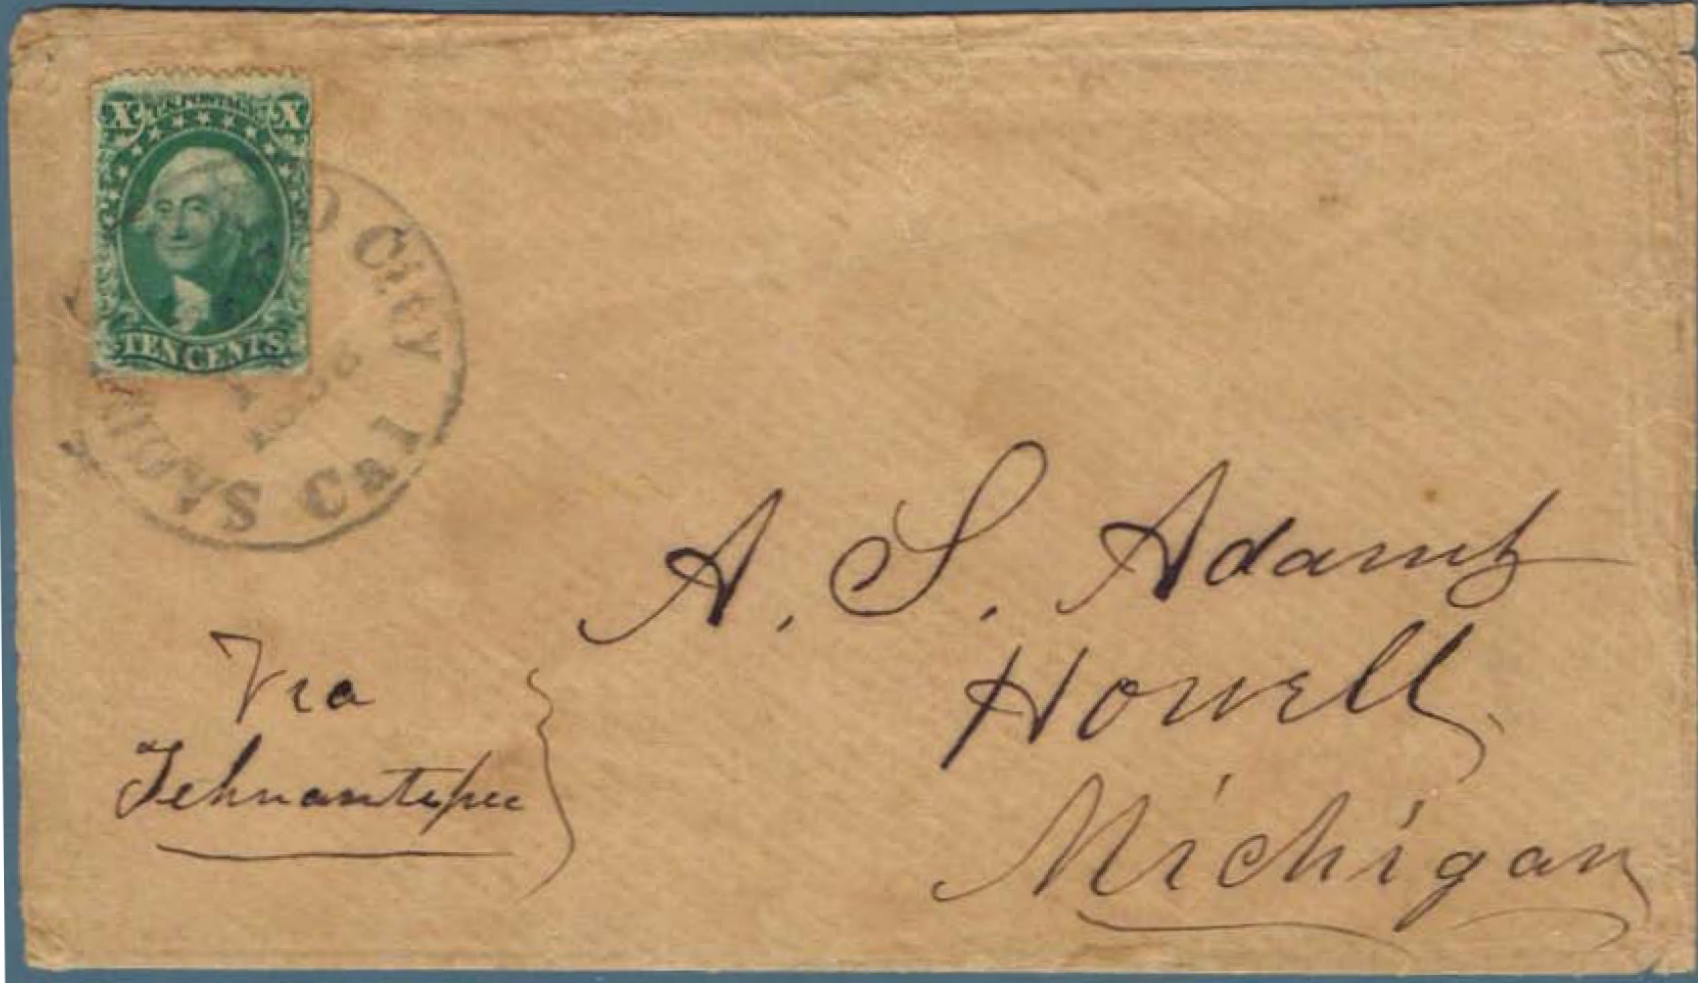 X U.S. POSTAGE X
TEN CENTS
O City
Cal
A. S. Adams
Howell
Michigan
Via
Tehuantepec